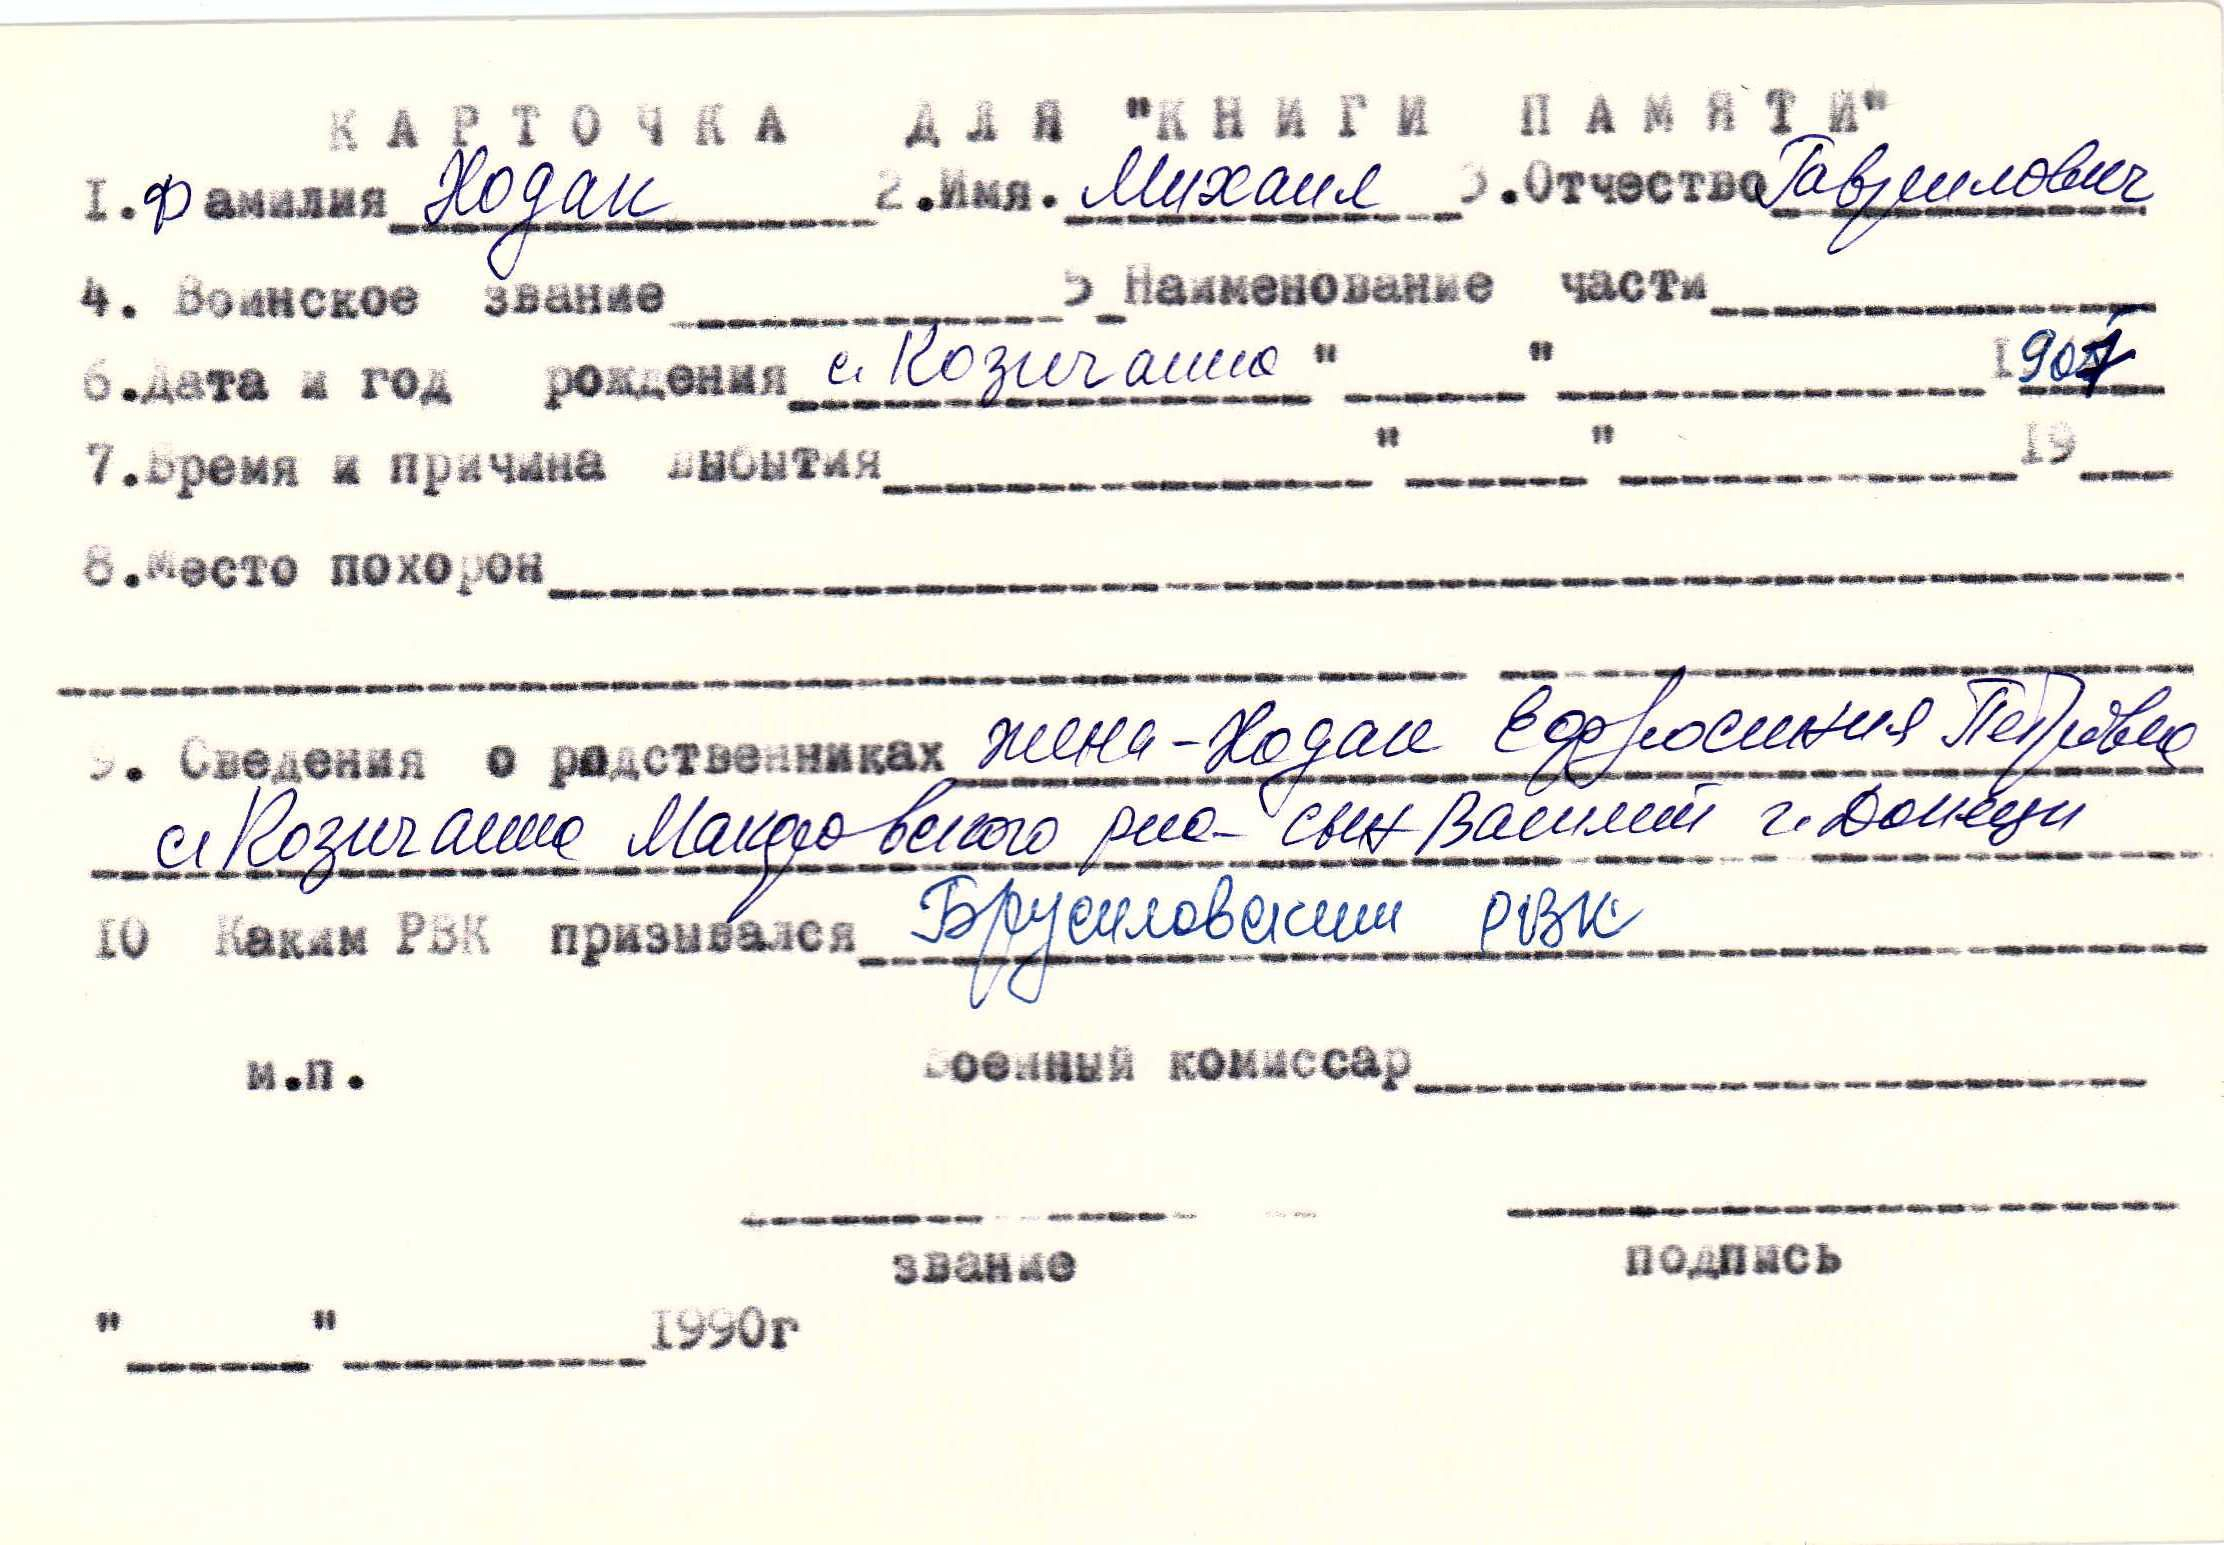 КАРТОЧКА ДЛЯ "КНИГИ ПАМЯТИ"
1.Фамилия Ходак 2.Имя. Михаил 3.Отчество Гаврилович
4. Воинское звание 5 Наименование части
6.Дата и год рождения с. Козичанка " " 1907
7.Время и причина выбытия " " 19
8.Место похорон
9. Сведения о родственниках жена - Ходак Ефросиния Петровна
с. Козичанка Макаровского р-на - сын Василий г. Донецк
10 Каким РВК призывался Брусиловским РВК
м.п. Военный комиссар
звание подпись
" " 1990г